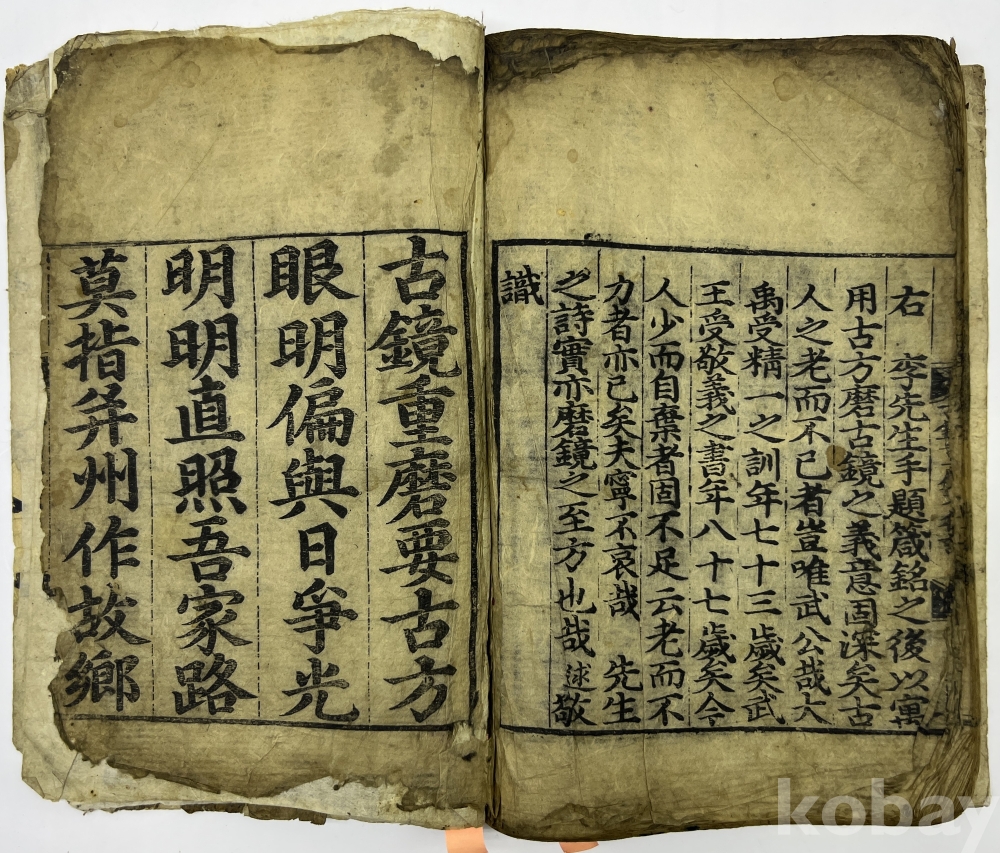 右 李先生手題箴銘之後以寓
用古方磨古鏡之義意固深矣古
人之老而不已者豈唯武公哉大
禹受精一之訓年七十三歲矣武
王受敬義之書年八十七歲矣今
人少而自棄者固不足云老而不
力者亦已矣夫寧不哀哉 先生
之詩實亦磨鏡之至方也哉 逑敬
識
古鏡重磨要古方
眼明偏與日爭光
明明直照吾家路
莫指并州作故鄉
kobay